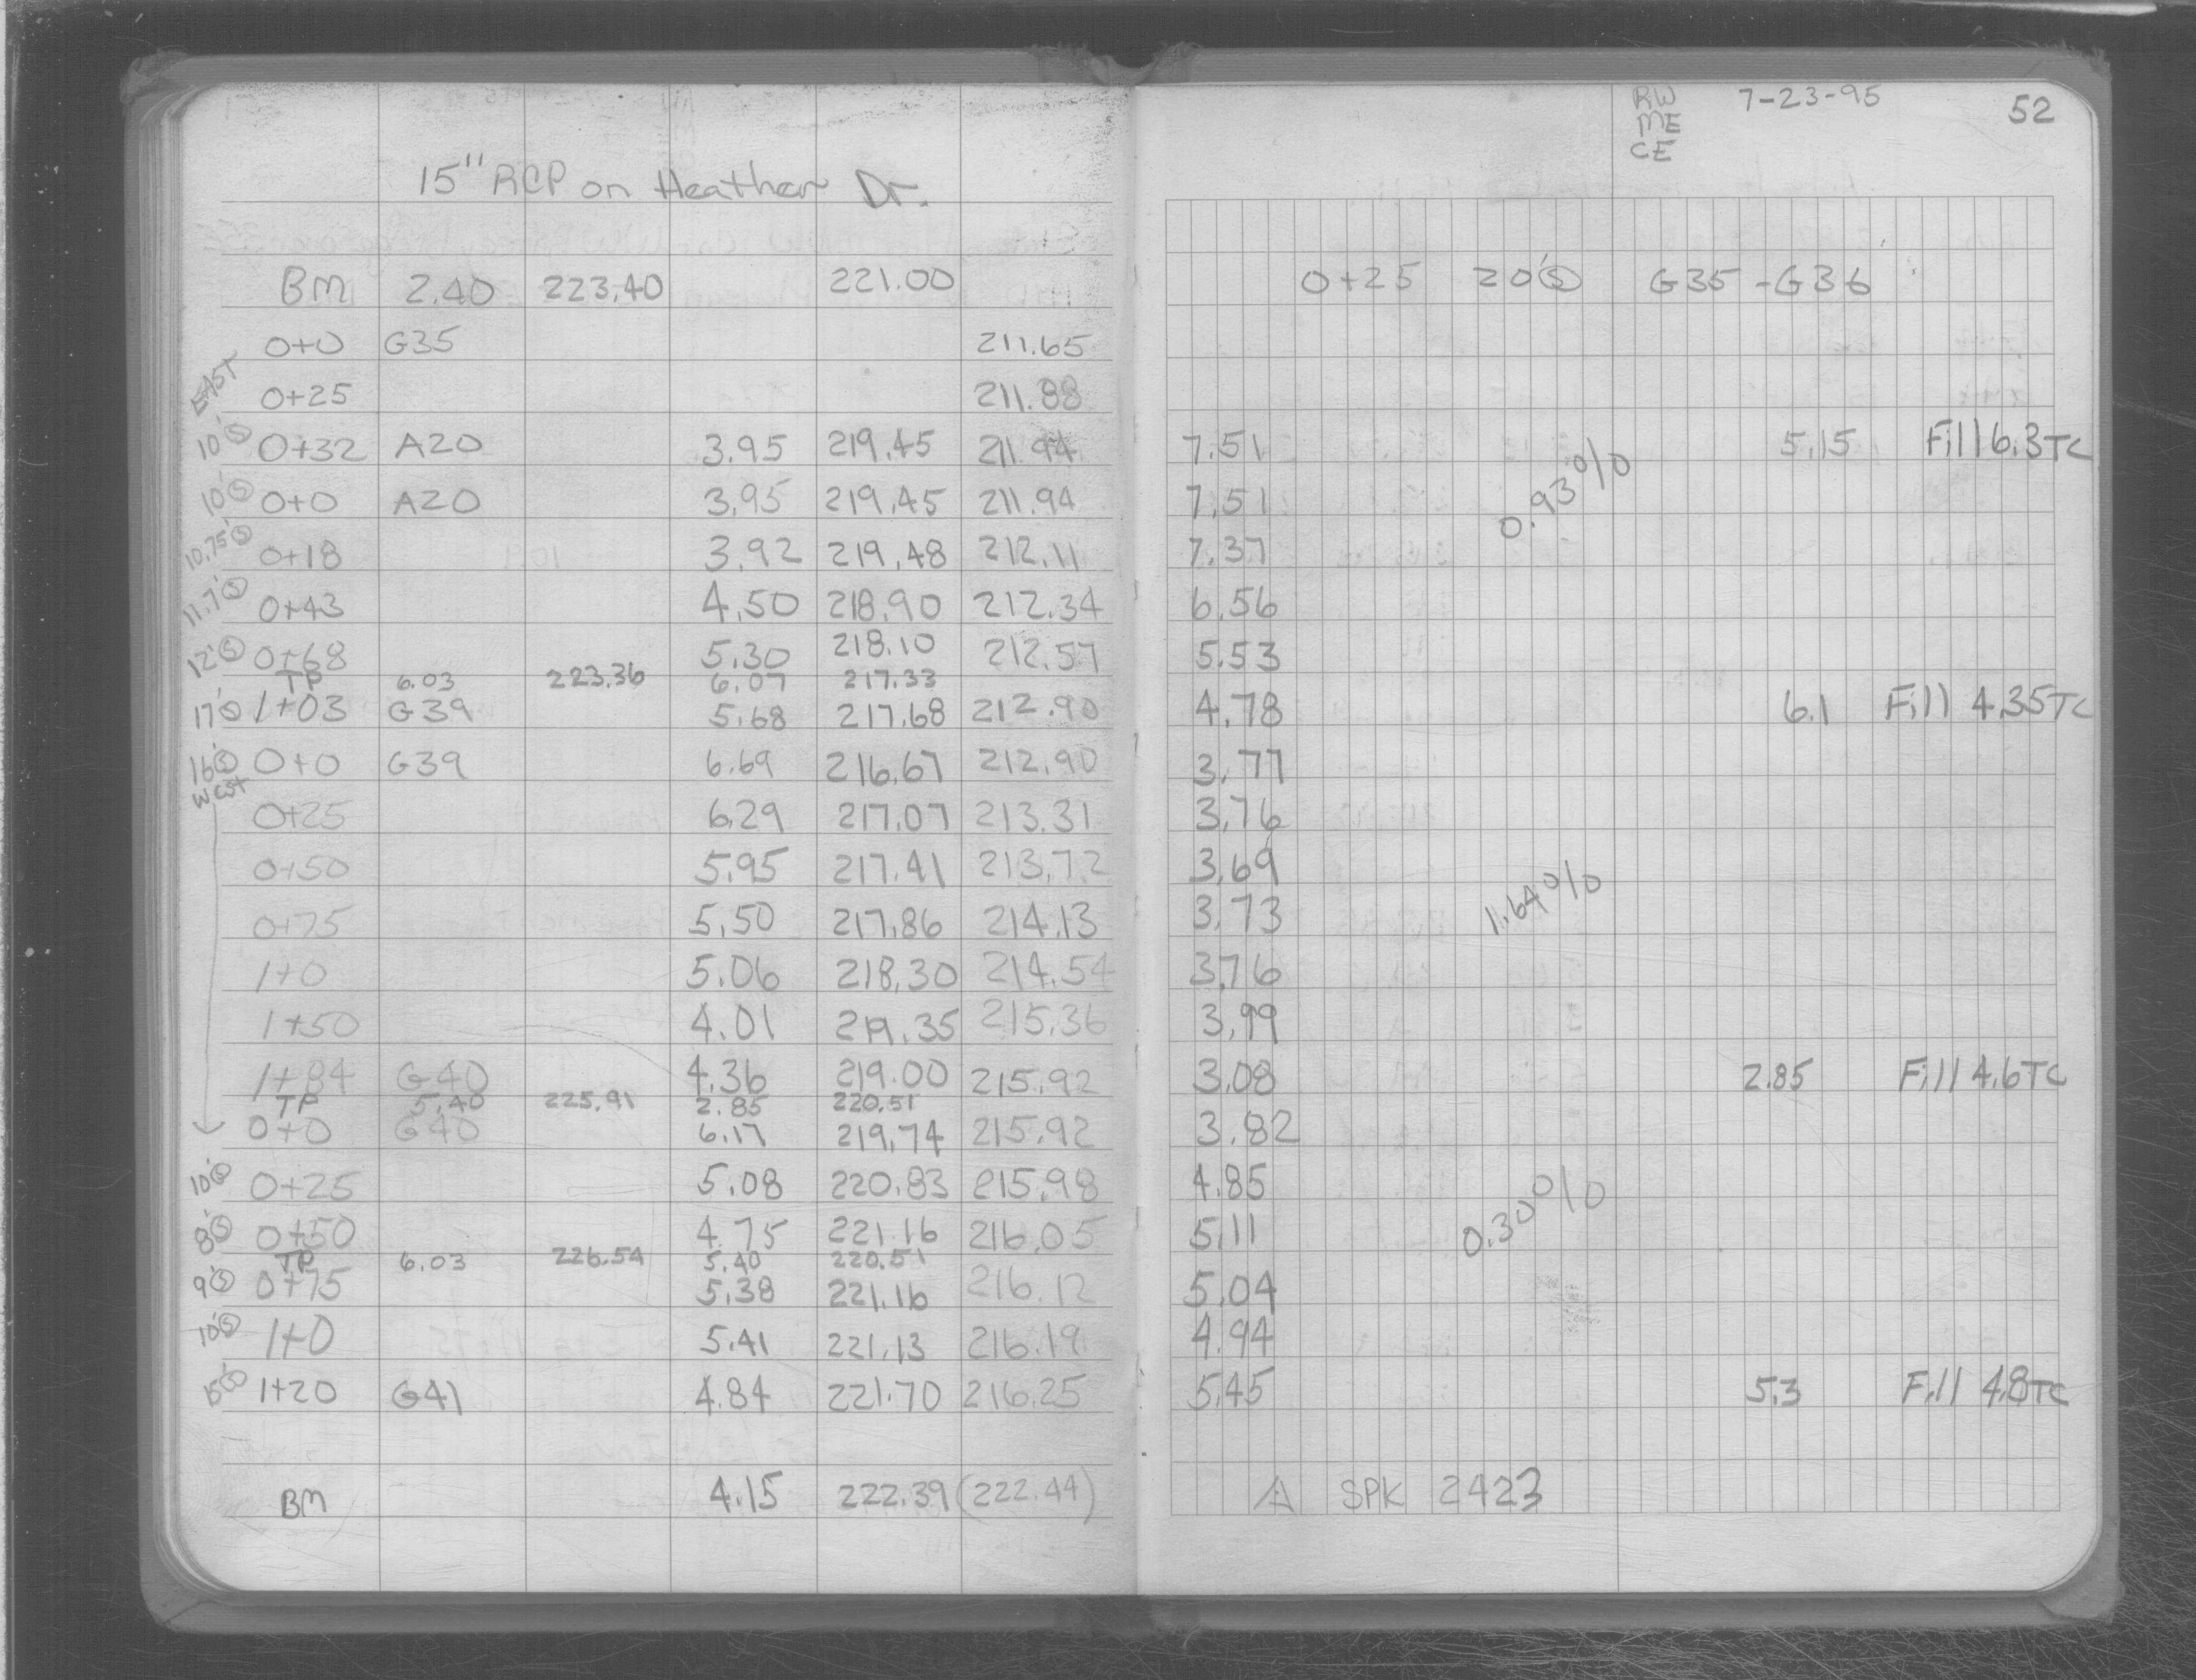 15" RCP on Heather Dr.
BM 2.40 223.40 221.00
0+0 G35 211.65
EAST
0+25 211.88
10' Ⓢ 0+32 A20 3.95 219.45 211.94
10' Ⓢ 0+0 A20 3.95 219.45 211.94
10.75' Ⓢ 0+18 3.92 219.48 212.11
11.7' Ⓢ 0+43 4.50 218.90 212.34
12' Ⓢ 0+68 5.30 218.10 212.57
TP 6.03 223.36 6.07 217.33
17' Ⓢ 1+03 G39 5.68 217.68 212.90
16' Ⓢ 0+0 G39 6.69 216.67 212.90
West
0+25 6.29 217.07 213.31
0+50 5.95 217.41 213.72
0+75 5.50 217.86 214.13
1+0 5.06 218.30 214.54
1+50 4.01 219.35 215.36
1+84 G40 4.36 219.00 215.92
TP 5.40 225.91 2.85 220.51
0+0 G40 6.17 219.74 215.92
10' Ⓢ 0+25 5.08 220.83 215.98
8' Ⓢ 0+50 4.75 221.16 216.05
TP 6.03 226.54 5.40 220.51
9' Ⓢ 0+75 5.38 221.16 216.12
10' Ⓢ 1+0 5.41 221.13 216.19
15' 1+20 G41 4.84 221.70 216.25
BM 4.15 222.39 (222.44)
RW 7-23-95 52
ME
CE
0+25 20' Ⓢ G35-G36
7.51 5.15 Fill 6.3 TC
7.51
0.93%
7.37
6.56
5.53
4.78 6.1 Fill 4.35 TC
3.77
3.76
3.69
1.64%
3.73
3.76
3.99
3.08 2.85 Fill 4.6 TC
3.82
4.85
0.30%
5.11
5.04
4.94
5.45 5.3 Fill 4.8 TC
SPK 2423